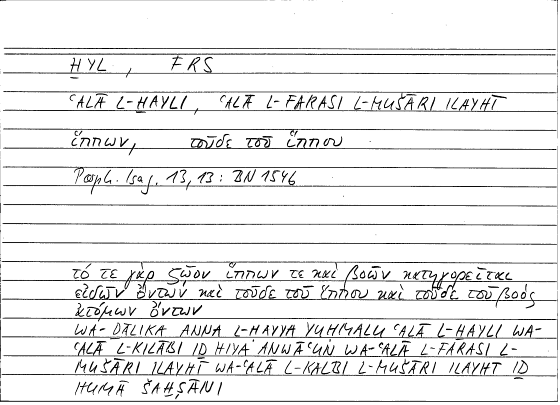 H̱YL, FRS
ʿALĀ L-H̱AYLI, ʿALĀ L-FARASI L-MUŠĀRI ILAYHĪ
ἵππων, τοῦδε τοῦ ἵππου
Porph. Isag. 13, 13: BN 1546
τό τε γὰρ ζῷον ἵππων τε καὶ βοῶν κατηγορεῖται
εἰδῶν ὄντων καὶ τοῦδε τοῦ ἵππου καὶ τοῦδε τοῦ βοός
ἀτόμων ὄντων
WA-ḎĀLIKA ANNA L-HAYYA YUHMALU ʿALĀ L-H̱AYLI WA-
ʿALĀ L-KILĀBI IḎ HIYA ANWĀʿUN WA-ʿALĀ L-FARASI L-
MUŠĀRI ILAYHĪ WA-ʿALĀ L-KALBI L-MUŠĀRI ILAYHĪ IḎ
HUMĀ ŠAH̱ṢĀNI